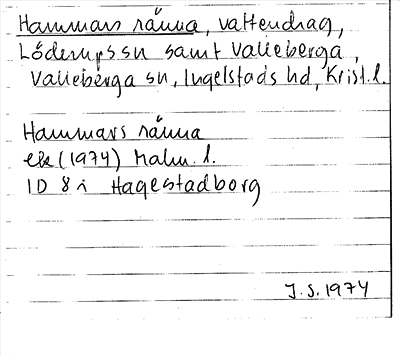 Hammars ränna, vattendrag,
Löderups sn samt Valleberga,
Valleberga sn, Ingelstads hd, Krist. l.
Hammars ränna
ek (1974) Malm. l.
1D 8i Hagestadborg
J.S. 1974